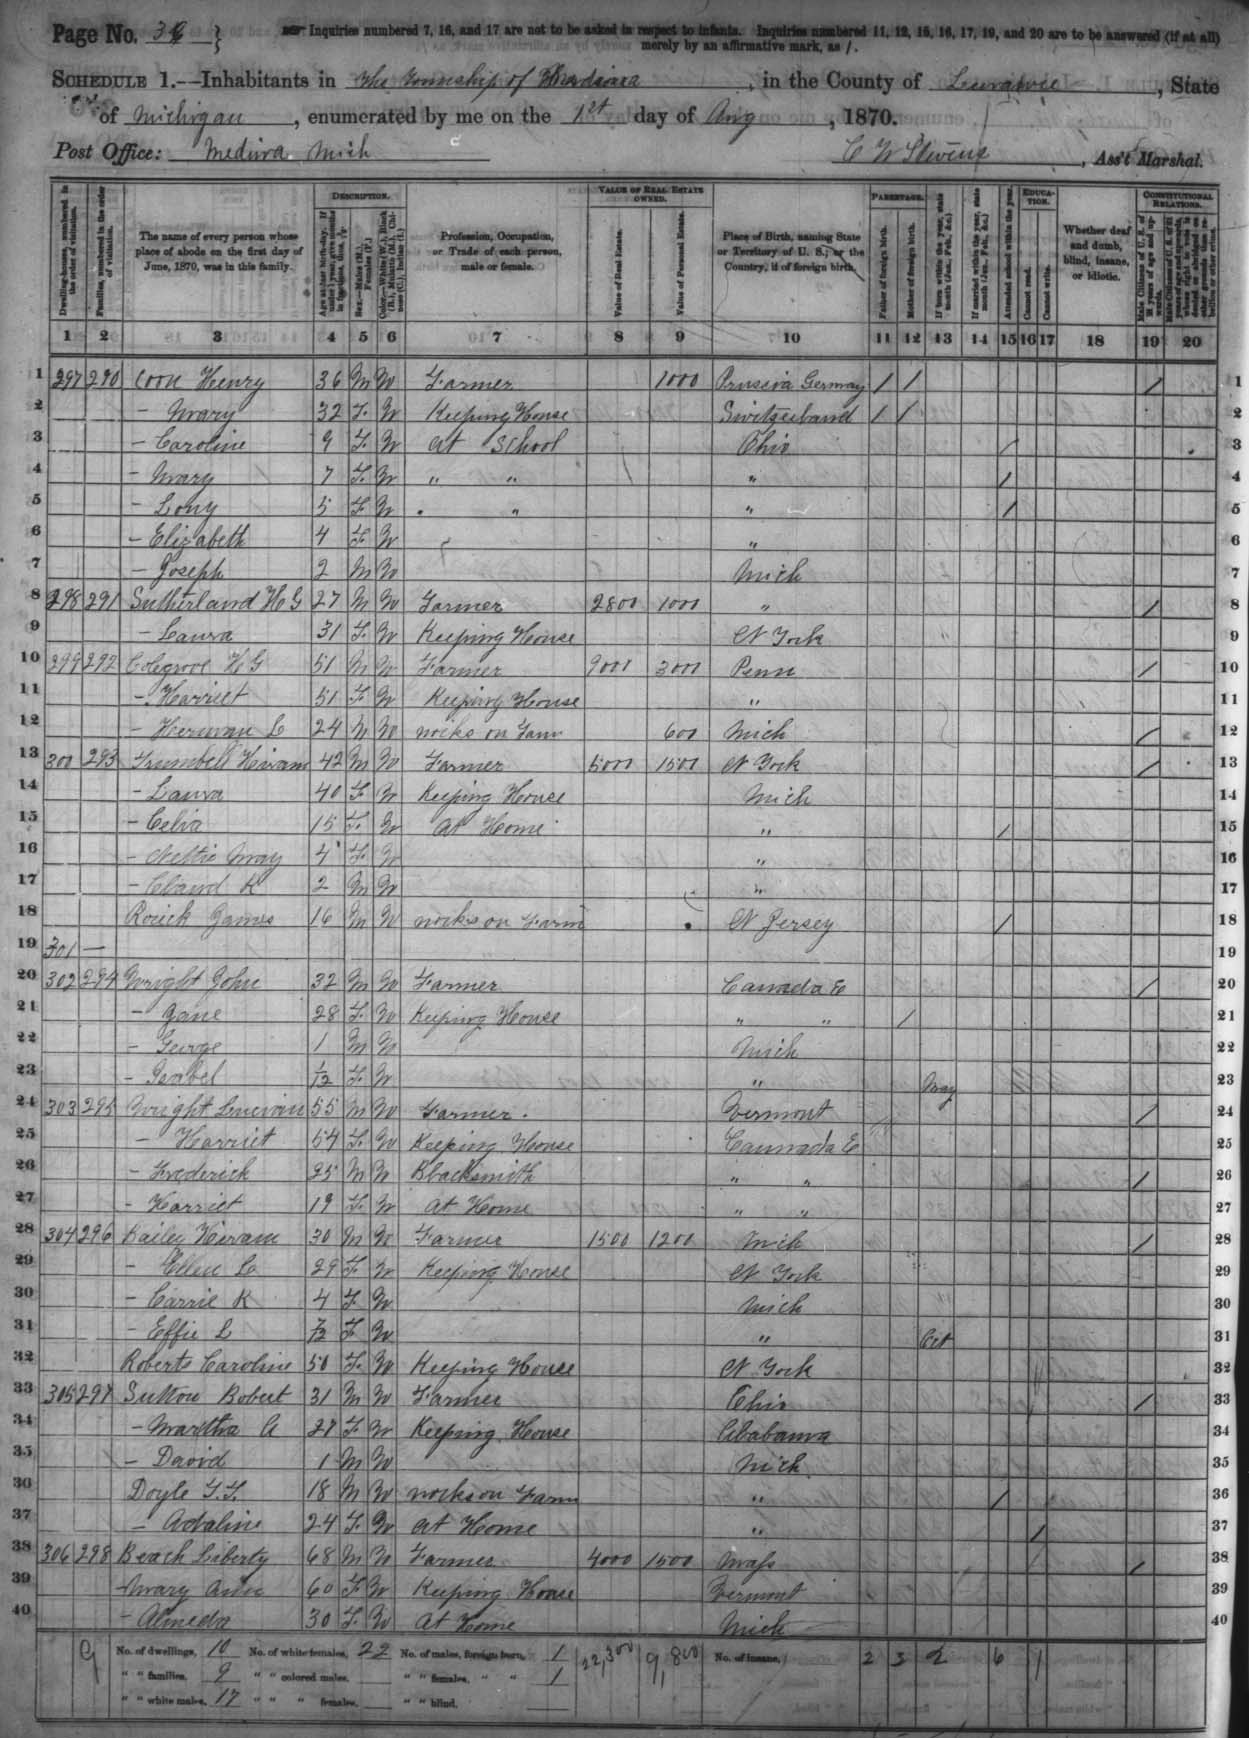 Page No. 36 } Inquiries numbered 7, 16, and 17 are not to be asked in respect to infants. Inquiries numbered 11, 12, 15, 16, 17, 19, and 20 are to be answered (if at all)
merely by an affirmative mark, as /.
SCHEDULE 1.—Inhabitants in The Township of , in the County of , State
of Michigan, enumerated by me on the 1st day of Aug, 1870.
Post Office: Medina Mich C W Stevens, Ass't Marshal.
Dwelling-houses, numbered in the order of visitation.
Families, numbered in the order of visitation.
The name of every person whose place of abode on the first day of June, 1870, was in this family.
DESCRIPTION.
Age at last birth-day. If under 1 year, give months in fractions, thus, 3/12
Sex.—Males (M.), Females (F.)
Color.—White (W.), Black (B.), Mulatto (M.), Chinese (C.), Indian (I.)
Profession, Occupation, or Trade of each person, male or female.
VALUE OF REAL ESTATE OWNED.
Value of Real Estate.
Value of Personal Estate.
Place of Birth, naming State or Territory of U. S.; or the Country, if of foreign birth.
PARENTAGE.
Father of foreign birth.
Mother of foreign birth.
If born within the year, state month (Jan., Feb., &c.)
If married within the year, state month (Jan., Feb., &c.)
EDUCATION.
Attended school within the year.
Cannot read.
Cannot write.
Whether deaf and dumb, blind, insane, or idiotic.
CONSTITUTIONAL RELATIONS.
Male Citizens of U. S. of 21 years of age and upwards.
1 2 3 4 5 6 7 8 9 10 11 12 13 14 15 16 17 18 19 20
1 297 290 Cook Henry 36 M W Farmer 1000 Prussia Germany / / / 1
2 — Mary 32 F W Keeping House Switzerland / / 2
3 — Caroline 9 F W At School Ohio / 3
4 — Mary 7 F W " " " / 4
5 — Lony 5 F W " " / 5
6 — Elizabeth 4 F W " 6
7 — Joseph 2 M W Mich 7
8 298 291 Sutherland H G 27 M W Farmer 2800 1000 " / 8
9 — Laura 31 F W Keeping House N York 9
10 299 292 Colegrove H G 51 M W Farmer 9000 3000 Penn / 10
11 — Harriet 51 F W Keeping House " 11
12 — Herman L 24 M W works on Farm 600 Mich / 12
13 300 293 Trumbell Hiram 42 M W Farmer 5000 1500 N York / 13
14 — Laura 40 F W Keeping House Mich 14
15 — Celia 15 F W At Home " / 15
16 — Nettie May 4 F W " 16
17 — Claud K 2 M W " 17
18 Rorick James 16 M W works on Farm N Jersey / 18
19 301 — 19
20 302 294 Wright John 32 M W Farmer Cannada E / 20
21 — Jane 28 F W Keeping House " " / 21
22 — George 1 M W Mich 22
23 — Isabel 1/12 F W " May 23
24 303 295 Wright 55 M W Farmer Vermont / 24
25 — Harriet 54 F W Keeping House Cannada E 25
26 — Frederick 25 M W Blacksmith " " / 26
27 — Harriet 19 F W At Home " " 27
28 304 296 Bailey Hiram 30 M W Farmer 1500 1200 Mich / 28
29 — Ellen L 29 F W Keeping House N York 29
30 — Carrie K 4 F W Mich 30
31 — Effie L F W " Oct 31
32 Roberts Caroline 50 F W Keeping House N York 32
33 305 297 Sutton Robert 31 M W Farmer Ohio / 33
34 — Martha A 27 F W Keeping House Alabama 34
35 — David 1 M W Mich 35
36 Doyle T.F. 18 M W works on Farm " / 36
37 — Adaline 24 F W At Home " / 37
38 306 298 Beach Liberty 68 M W Farmer 4000 1500 Mass / 38
39 — Mary Ann 60 F W Keeping House Vermont 39
40 — Almeda 30 F W At Home Mich 40
9 No. of dwellings, 10 No. of white females, 22 No. of males, foreign born, 1 22,300 9,800 No. of insane, 2 3 2 6 1
" " families, 9 " " colored males, " " females, " " 1
" " white males, 17 " " " females, " " blind.